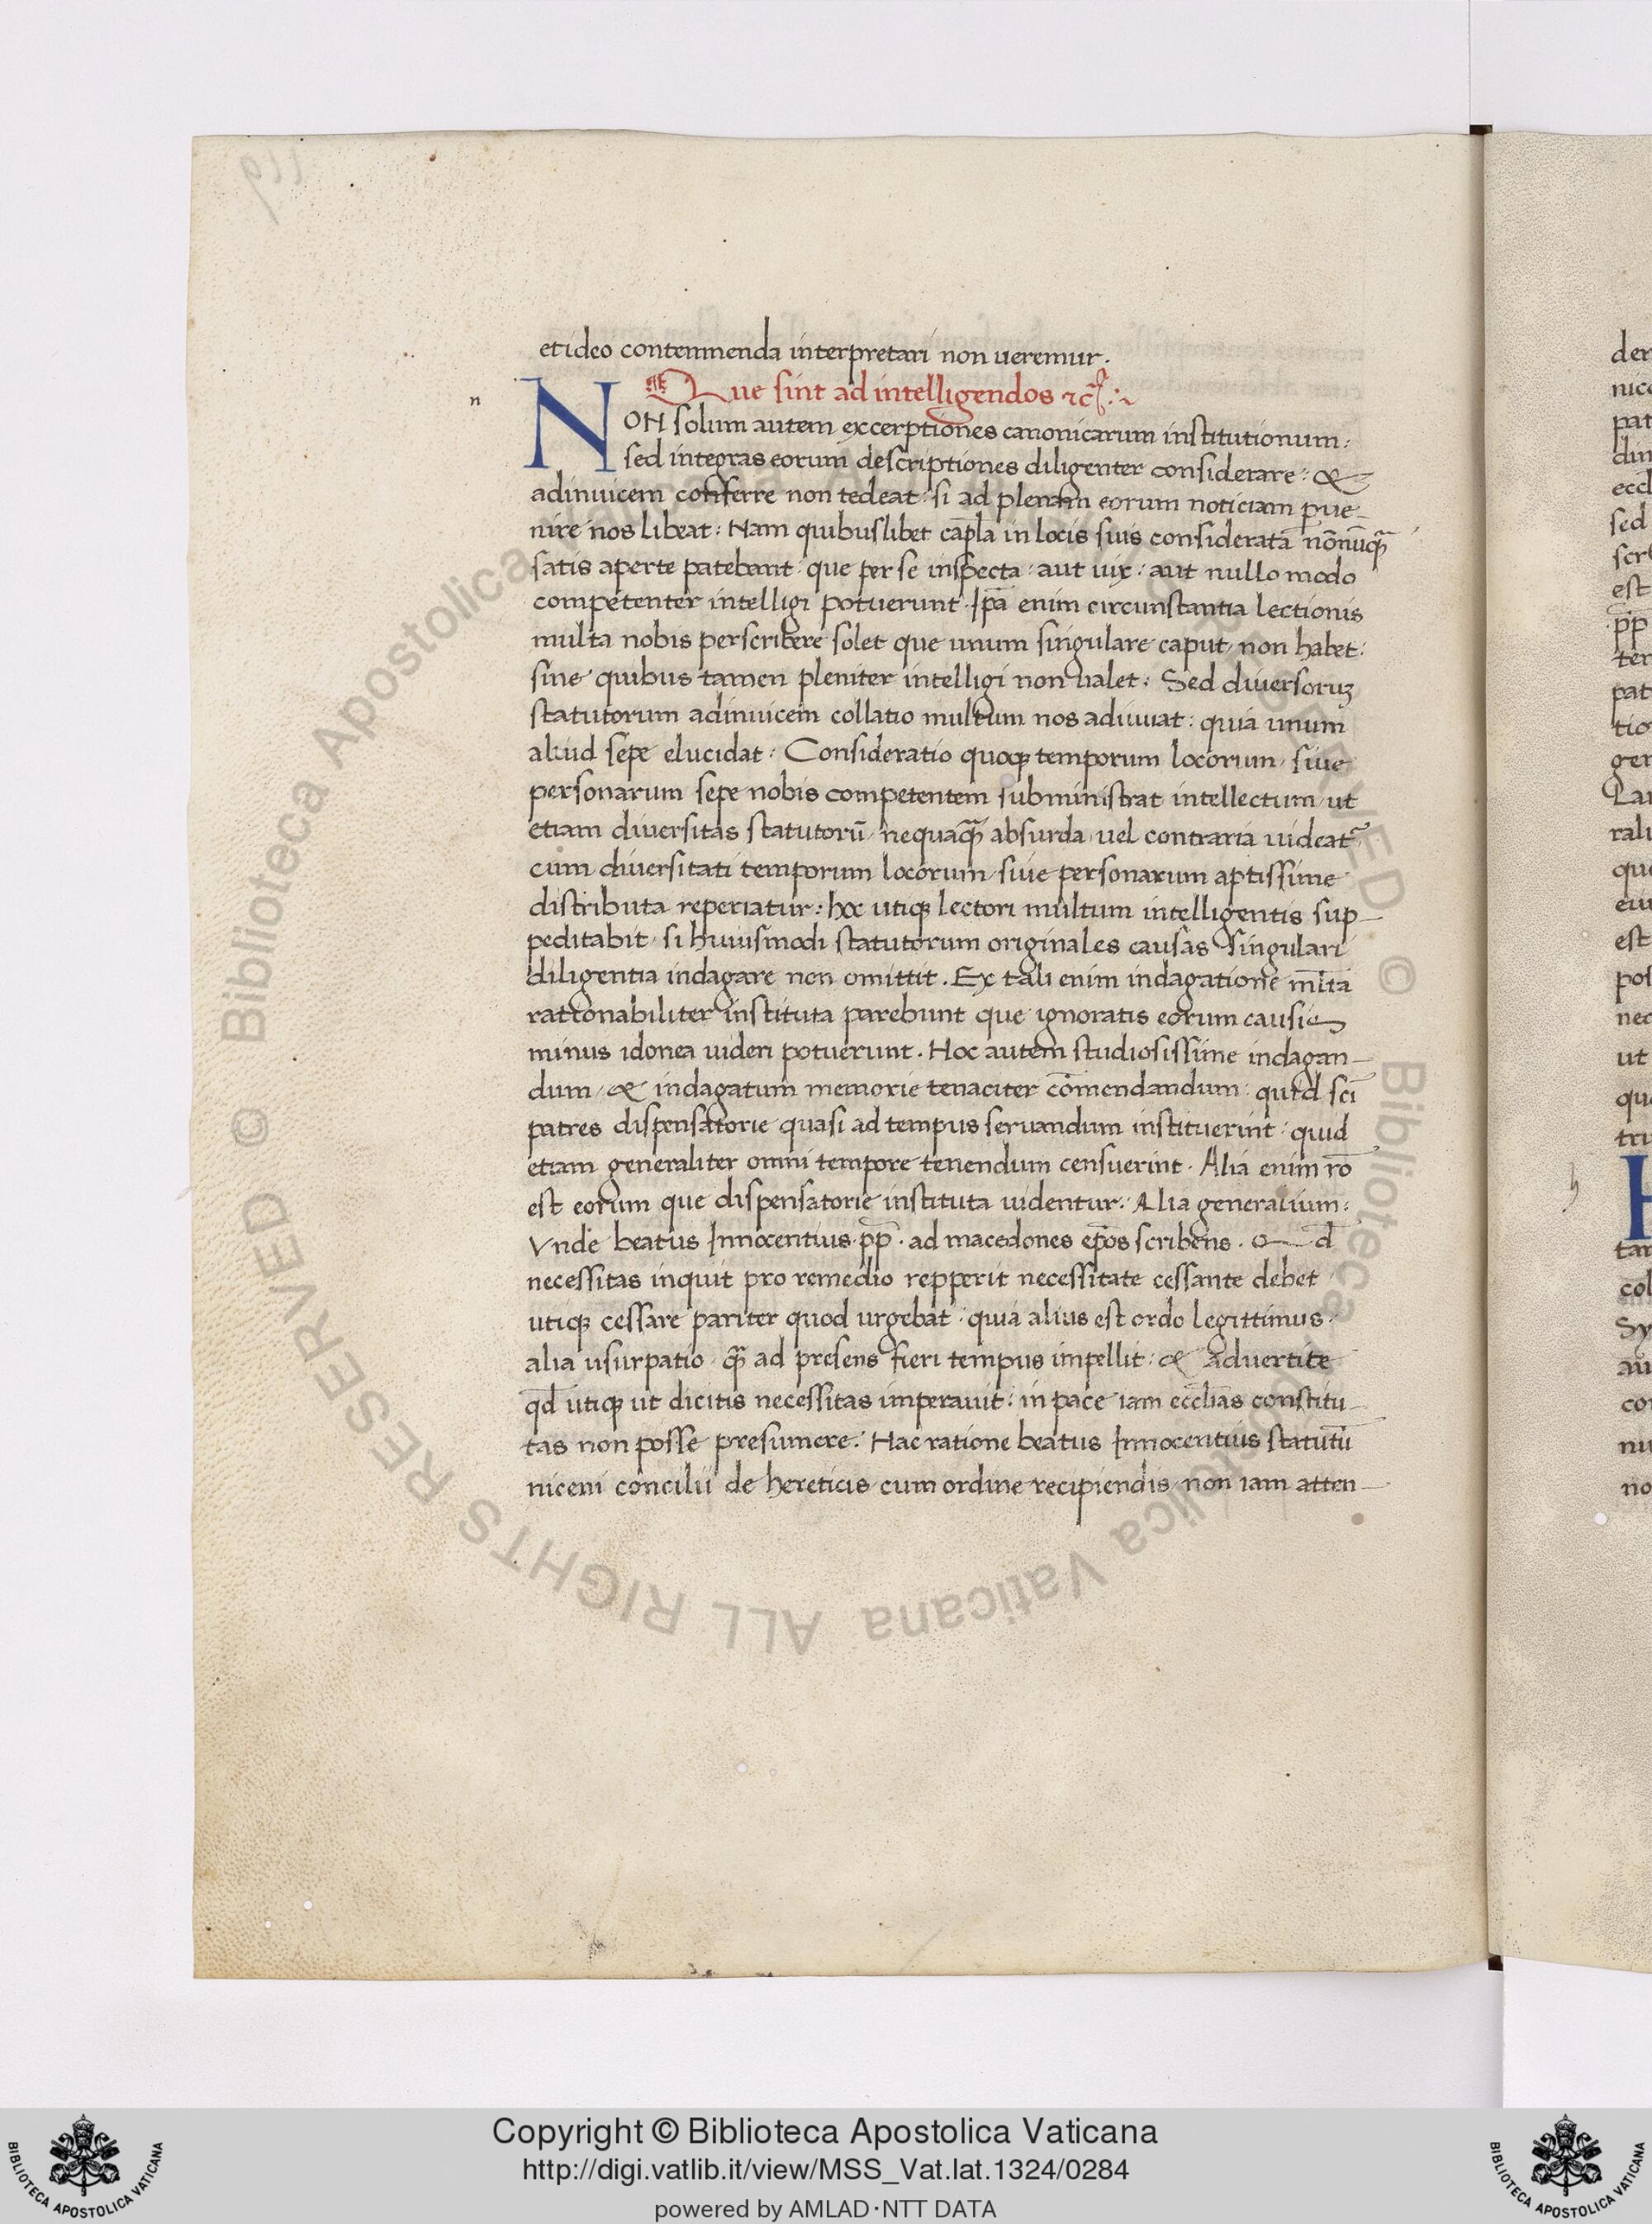 et ideo contemnenda interpretari non ueremur.
Que sint ad intelligendos ⁊c̃
n
NON solum autem excerptiones canonicarum institutionum:
sed integras eorum descriptiones diligenter considerare: &
adinuicem conferre non tedeat: si ad plenam eorum noticiam pue-
nire nos libeat: Nam quibuslibet cap̄la in locis suis considerata nōnūq̃
satis aperte patebant: que per se inspecta: aut uix: aut nullo modo
competenter intelligi potuerunt. Ip̄a enim circunstantia lectionis
multa nobis perscribere solet que unum singulare caput non habet:
sine quibus tamen pleniter intelligi non ualet: Sed diuersoruꝫ
statutorum adinuicem collatio multum nos adiuuat: quia unum
aliud sepe elucidat: Consideratio quoqꝫ temporum locorum siue
personarum sepe nobis competentem subministrat intellectum ut
etiam diuersitas statutorū nequaq̃ absurda uel contraria uideat̃
cum diuersitati temporum locorum siue personarum aptissime
distributa reperiatur: hoc utiqꝫ lectori multum intelligentis sup-
peditabit si huiusmodi statutorum originales causas singulari
diligentia indagare non omittit. Ex tali enim indagatione m̄lta
rationabiliter instituta parebunt que ignoratis eorum causis
minus idonea uideri potuerunt. Hoc autem studiosissime indagan-
dum & indagatum memorie tenaciter cōmendandum: quid sc̄i
patres dispensatorie quasi ad tempus seruandum instituerint: quid
etiam generaliter omni tempore tenendum censuerint. Alia enim rō
est eorum que dispensatorie instituta uidentur: Alia generalium:
Vnde beatus Innocentius pp̄. ad macedones ep̄os scribens. Qd̄
necessitas inquit pro remedio repperit necessitate cessante debet
utiqꝫ cessare pariter quod urgebat: quia alius est ordo legittimus:
alia usurpatio q̃ ad presens fieri tempus impellit: & aduertite
qd̄ utiqꝫ ut dicitis necessitas imperauit: in pace iam eccl̄ias constitu-
tas non posse presumere: Hac ratione beatus Innocentius statutū
niceni concilii de hereticis cum ordine recipiendis non iam atten-
h
© Biblioteca Apostolica Vaticana ALL RIGHTS RESERVED © Biblioteca Apostolica Vaticana ALL RIGHTS RESERVED
Copyright © Biblioteca Apostolica Vaticana
http://digi.vatlib.it/view/MSS_Vat.lat.1324/0284
powered by AMLAD·NTT DATA
BIBLIOTECA APOSTOLICA VATICANA
BIBLIOTECA APOSTOLICA VATICANA